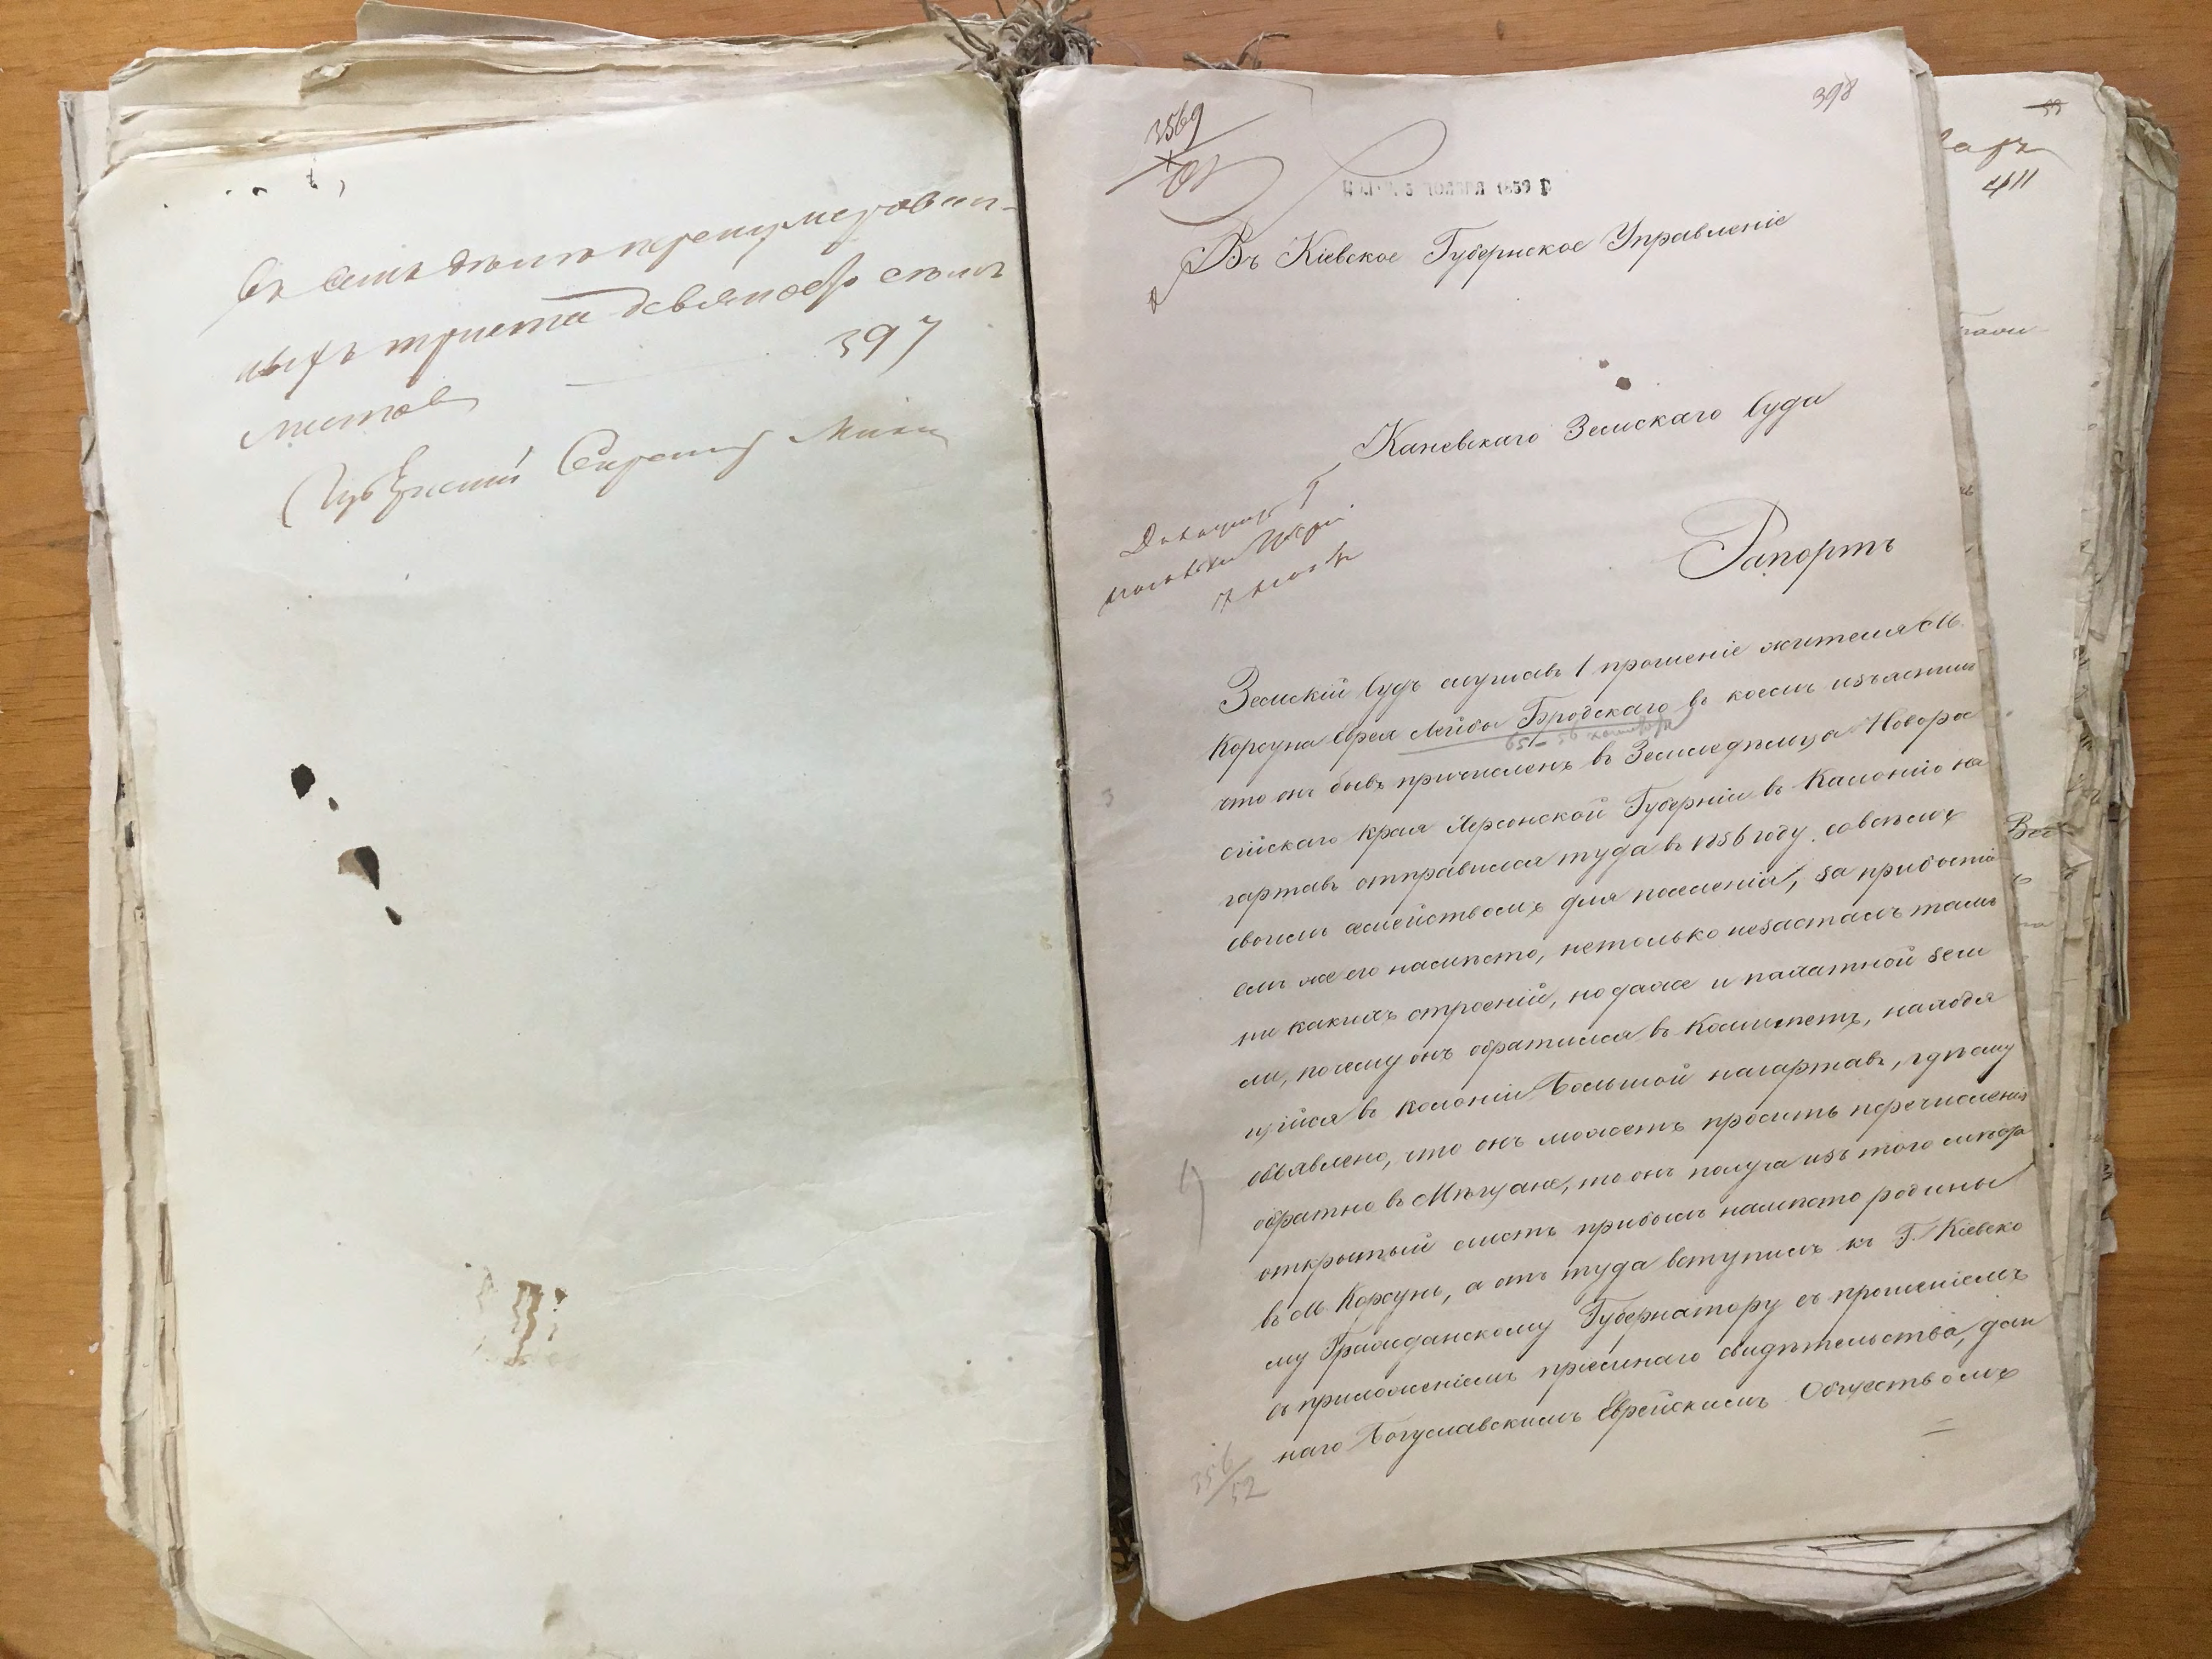 Въ семъ дѣлѣ перенумерован-
ныхъ триста девяносто семь
листовъ 397
Губернскій Секретарь
398
3569
5 НОЯБРЯ 1859 Г
Въ Кіевское Губернское Управленіе
Каневскаго Земскаго Суда
Рапортъ
Земскій Судъ слушавъ 1 прошеніе жителя М.
Корсуна Еврея Лейбы Бродскаго въ коемъ изъяснилъ
65-56
что онъ бывъ причисленъ въ Земледѣльца Новорос
сійскаго края Херсонской Губерніи въ Калонію на
гартавъ отправился туда въ 1856 году совсѣмъ
своимъ семействомъ для поселенія, за прибытіе
емъ же его намѣсто, нетолько незасталъ тамъ
ни какихъ строеній, но даже и пахатной зем
ли, почему онъ обратился въ Комитетъ, находя
щійся въ колоніи Большой нагартавъ, гдѣ ему
объявлено, что онъ можетъ просить перечисленія
обратно въ Мѣщане, то онъ получа изъ того
открытый листъ прибылъ намѣсто родины
въ М. Корсунь, а отъ туда вступилъ къ Г. Кіевско
му Гражданскому Губернатору съ прошеніемъ
съ приложеніемъ пріемнаго свидѣтельства, дан
наго Богуславскимъ Еврейскимъ Обществомъ
356/52
411